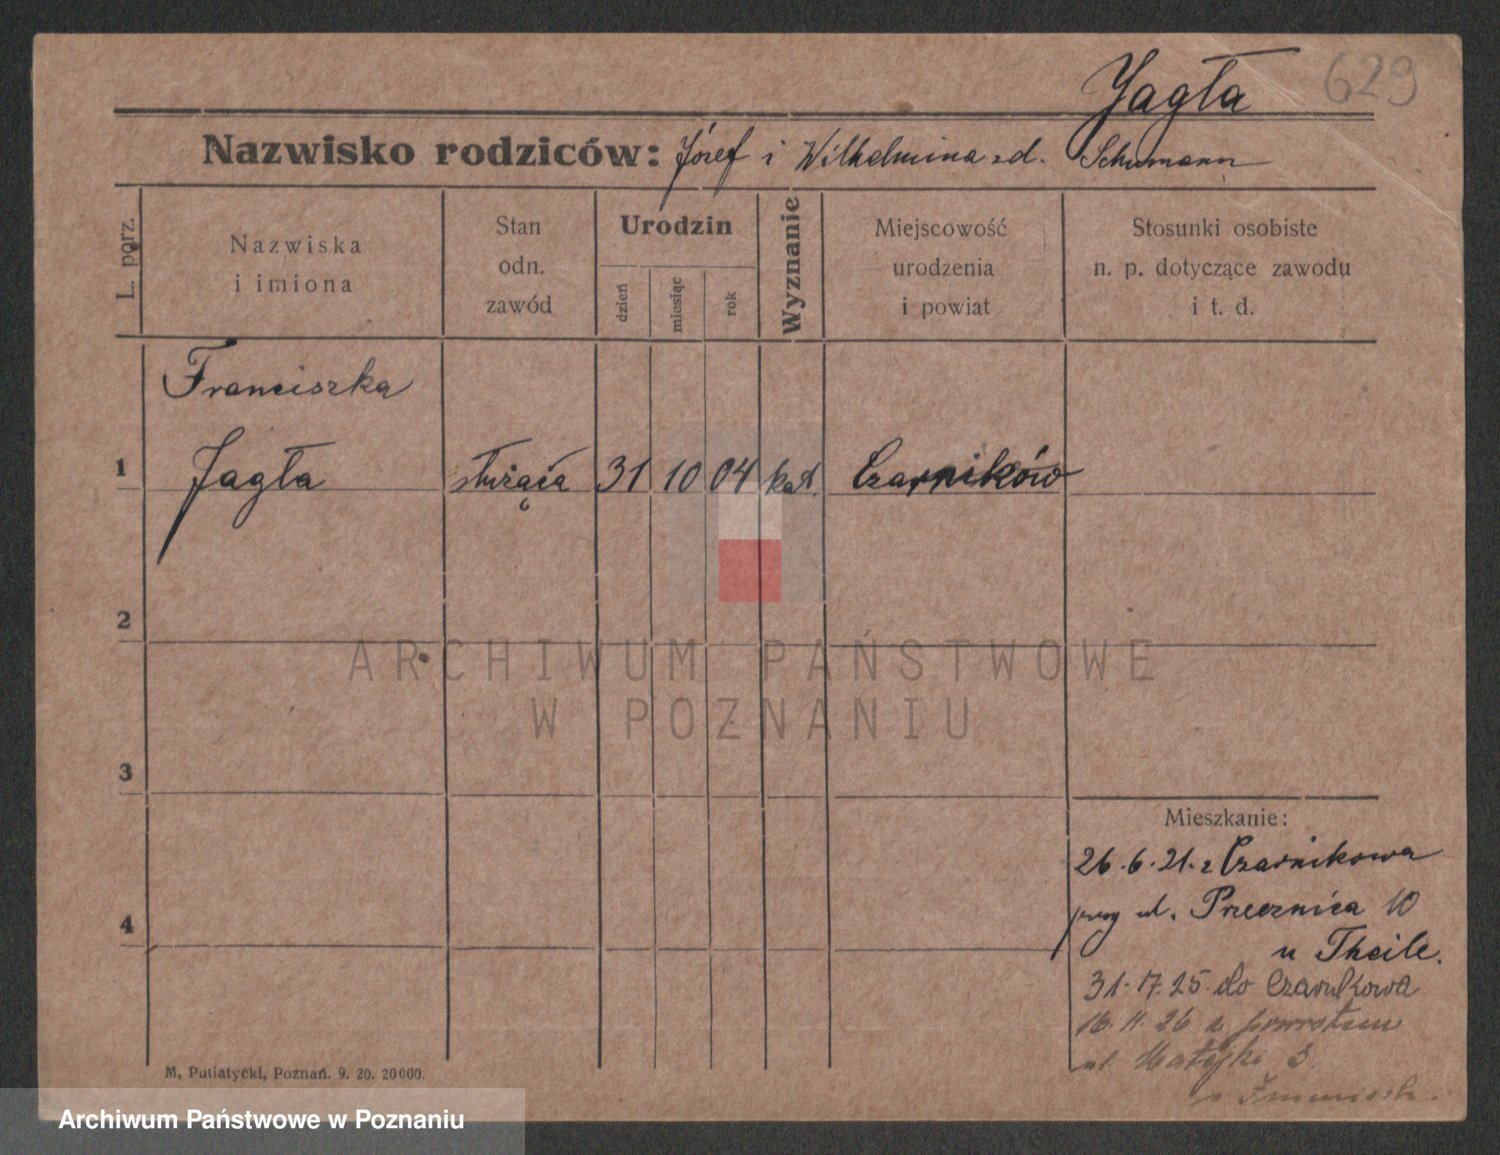 Jagła 629
Nazwisko rodziców: Józef i Wilhelmina zd. Schumann
L. porz.
Nazwiska
i imiona
Stan
odn.
zawód
Urodzin
dzień
miesiąc
rok
Wyznanie
Miejscowość
urodzenia
i powiat
Stosunki osobiste
n. p. dotyczące zawodu
i t. d.
Franciszka
1 Jagła służąca 31 10 04 kat. Czarników
2
ARCHIWUM PAŃSTWOWE
W POZNANIU
3
Mieszkanie:
26.6.21. z Czarnikowa
przy ul. Przecznica 10
4
u Theile.
31. 25. do Czarnkowa
16. 11. 26 z powrotem
ul. Matejki 3.
M. Putiatycki, Poznań. 9. 20. 20000.
Archiwum Państwowe w Poznaniu